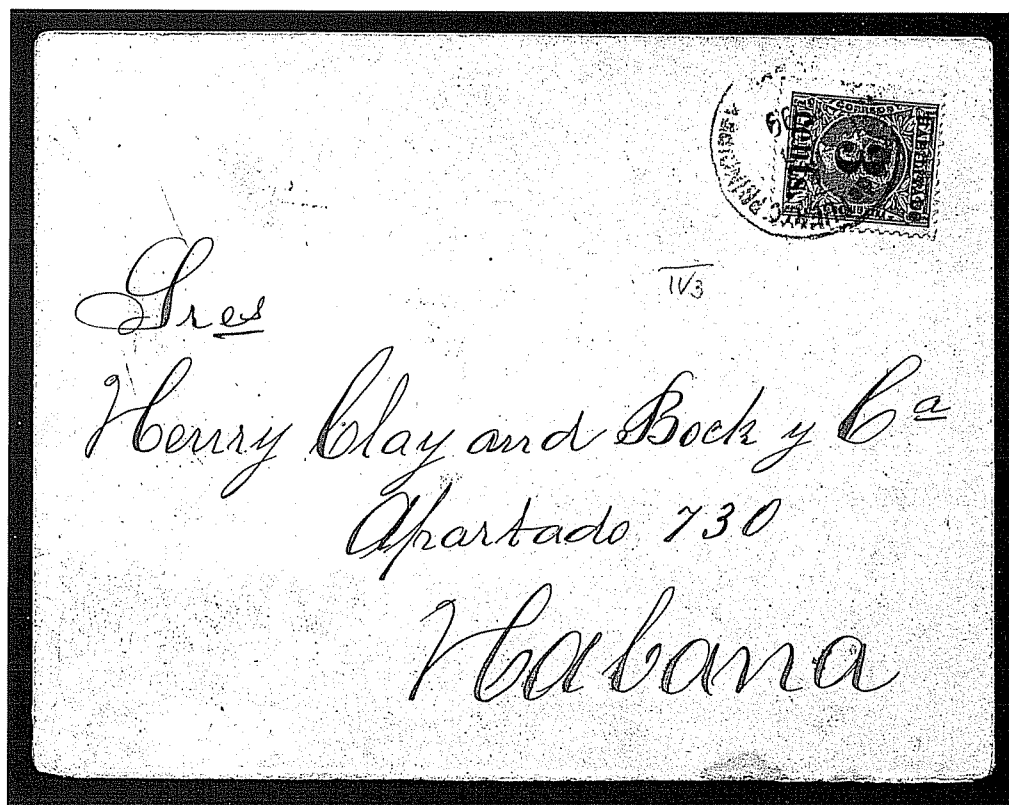 3
cents
IV3
Sres
Henry Clay and Bock y Ca
Apartado 730
Habana